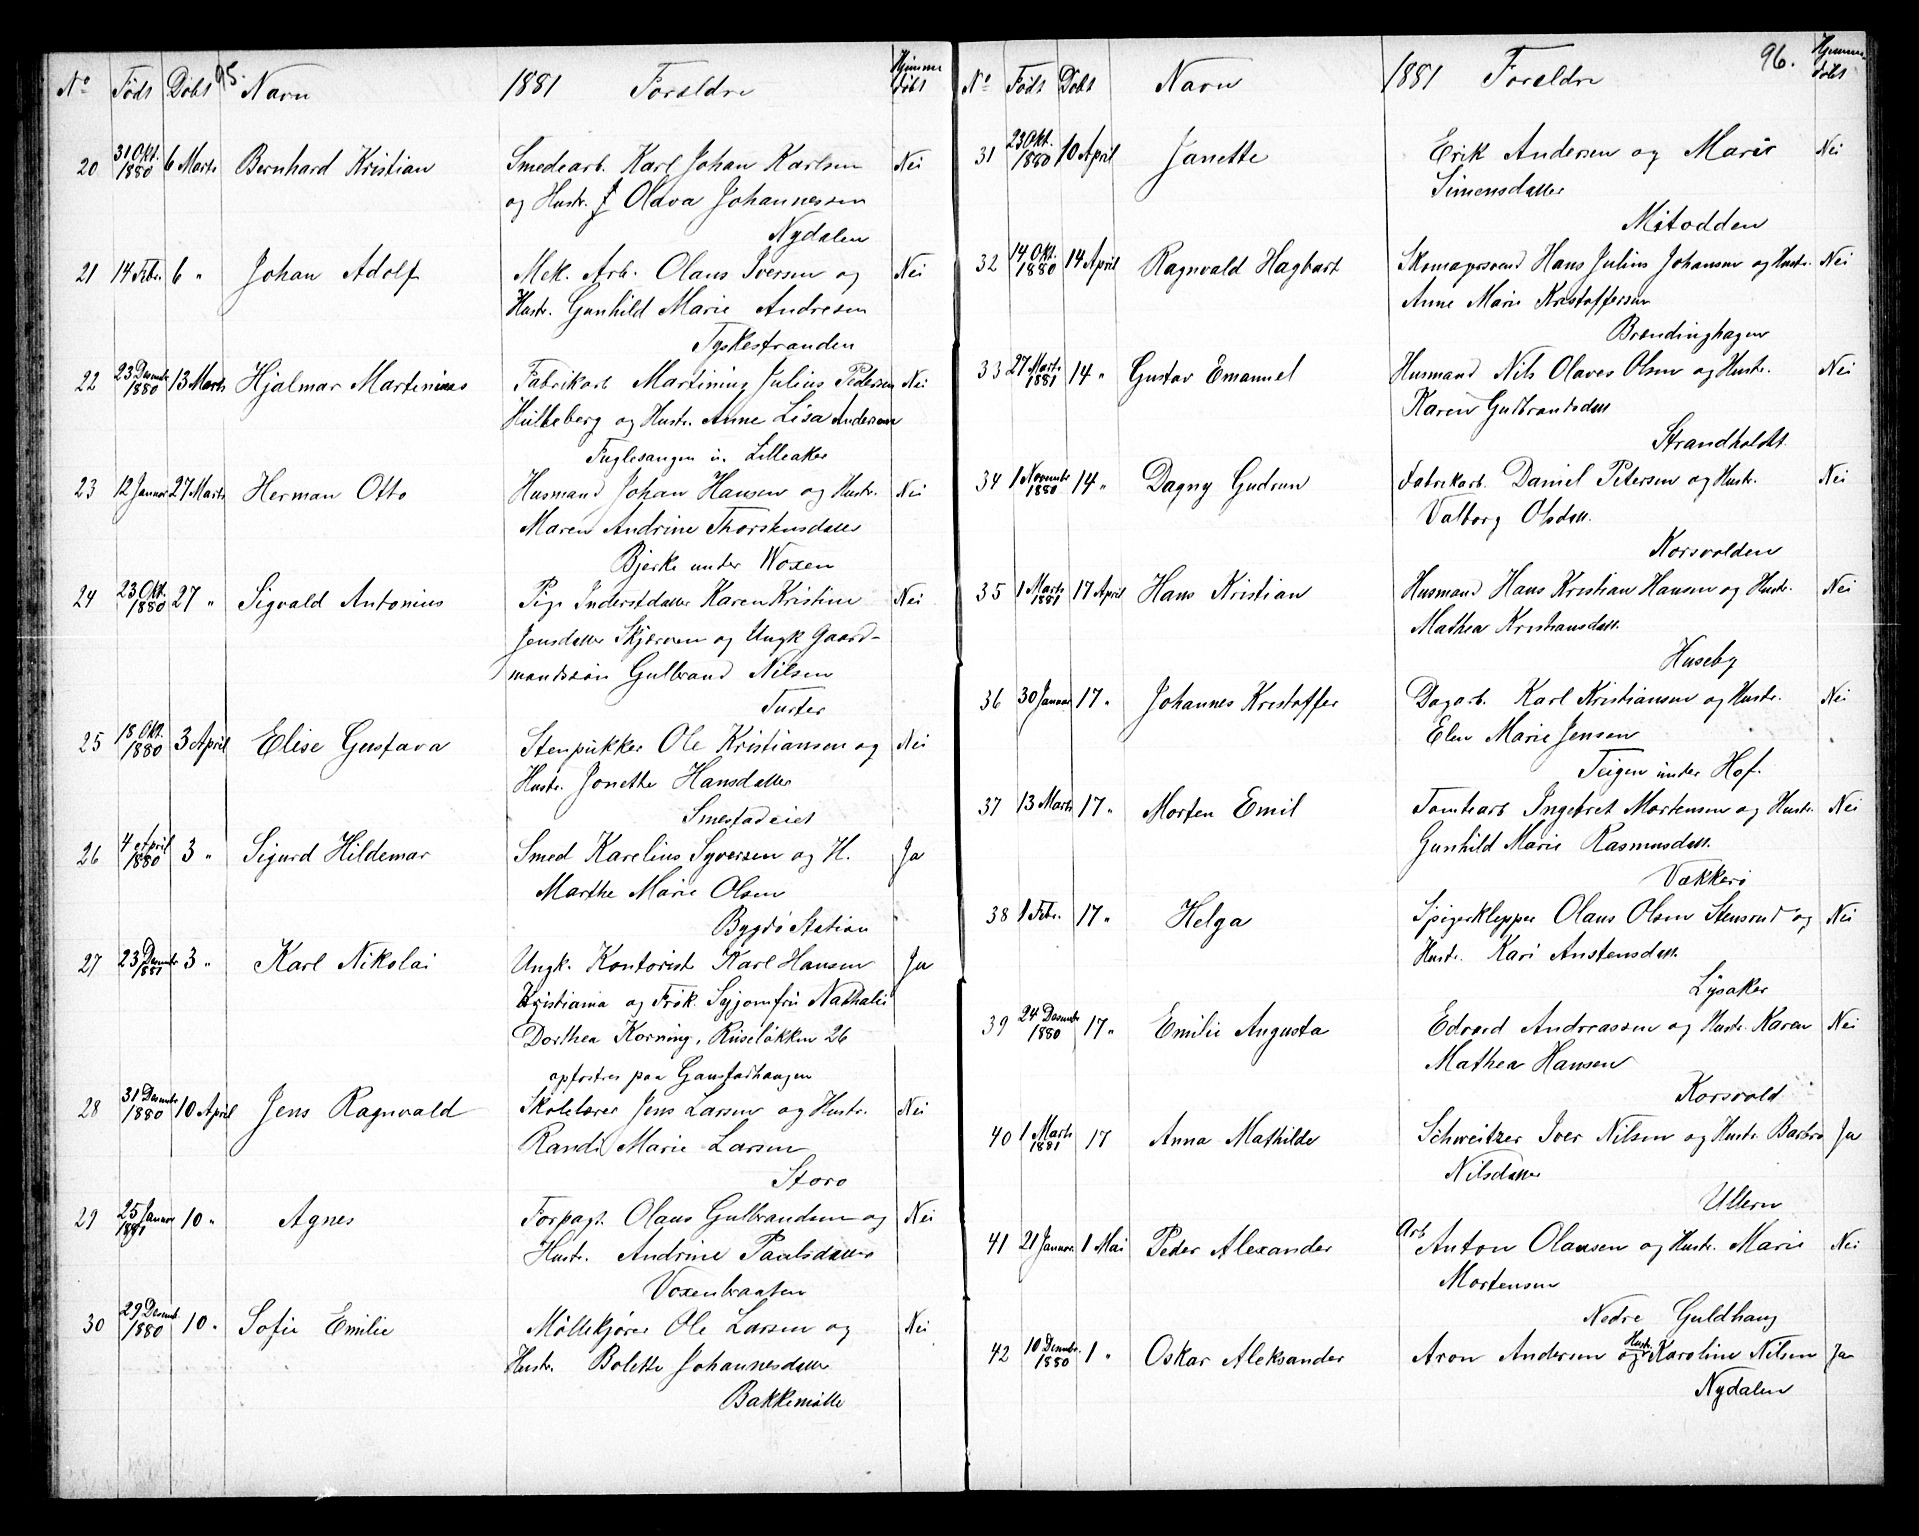 95.
No Født Døbt Navn 1881 Foreldre Hjemme døbt
20 31 Okt. 1880 6 Marts Bernhard Kristian Smedearb. Karl Johan Karlsen Nei
og Hustr. Olava Johannessen
Nydalen
21 14 Febr. 6 " Johan Adolf Mek. Arb. Olaus Iversen og Nei
Hustr. Gunhild Marie Andresen
Tyskestranden
22 23 Desember 1880 13 Marts Hjalmar Martinius Fabrikarb. Martinius Julius Pedersen Nei
Hulleberg og Hustr. Anne Lisa Andersen
Fuglesangen u. Lilleaker
23 12 Januar 27 Marts Herman Otto Husmand Johan Hansen og Hustr. Nei
Maren Andrine Thorstensdatter
Bjerke under Woxen
24 23 Okt. 1880 27 " Sigvald Antonius Pige Inderstdatter Karen Kristine Nei
Jensdatter Skjærven og Ungk Gaard-
mandssøn Gulbrand Nilsen
Turter
25 18 Okt. 1880 3 April Elise Gustava Stenpukker Ole Kristiansen og Nei
Hustr. Jonette Hansdatter
Smestadeiet
26 4 April 1880 3 " Sigurd Hildemar Smed Karelius Syversen og H. Ja
Marthe Marie Olsen
Bygdø Station
27 23 Desember 1881 3 " Karl Nikolai Ungk. Kontorist Karl Hansen Ja
Kristiania og Frøk. Syjomfru Nathalie
Dorthea Korning, Ruseløkken 26
opfostres paa Gaustadhaugen
28 31 Desember 1880 10 April Jens Ragnvald Skolelærer Jens Larsen og Hustr. Nei
Randi Marie Larsen
Storo
29 25 Januar 1881 10 " Agnes Forpagt. Olaus Gulbrandsen og Nei
Hustr. Andrine Paulsdatter
Voxenbraaten
30 29 Desemb. 1880 10 " Sofie Emilie Møllekjører Ole Larsen og Nei
Hustr. Bolette Johannesdatter
Bakkemølle
96.
No Født Døbt Navn 1881 Foreldre Hjemme døbt
31 23 Okt. 1880 10 April Janette Erik Andersen og Marie Nei
Simensdatter
Mitodden
32 14 Okt. 1880 14 April Ragnvald Hagbart Skomagersvend Hans Julius Johansen og Hustr. Nei
Anne Marie Kristoffersen
Brændinghagen
33 27 Marts 1881 14 " Gustav Emanuel Husmand Nils Olaves Olsen og Hustr. Nei
Karen Gulbrandsdatt.
Strandholdt
34 1 November 1880 14 " Dagny Gudrun Fabrikarb. Daniel Petersen og Hustr. Nei
Valborg Olsdatt.
Korsvolden
35 1 Marts 1881 17 April Hans Kristian Husmand Hans Kristian Hansen og Hustr. Nei
Mathea Kristiansdatt.
Huseby
36 30 Januar 17 " Johannes Kristoffer Dagarb. Karl Kristiansen og Hustr. Nei
Elen Marie Jensen
Teigen under Hof.
37 13 Marts 17 " Morten Emil Tomtearb Ingebret Mortensen og Hustr. Nei
Gunhild Marie Rasmusdatt.
Vækkerø
38 1 Febr. 17 " Helga Spigerklepper Olaus Olsen Stensrud og Nei
Hustr. Kari Anstensdatt.
Lysaker
39 24 Desember 1880 17 " Emilie Augusta Edvard Andreassen og Hustr. Karen Nei
Mathea Hansen
Korsvold
40 1 Marts 1881 17 Anna Mathilde Schweitzer Iver Nilsen og Hustr Barbro Ja
Nilsdatter
Ullern
41 21 Januar. 1 Mai Peder Alexander Arb Anton Olausen og Hustr. Marie Nei
Mortensen
Nedre Guldhaug
42 10 Desembr. 1880 1 " Oskar Aleksander Aron Andersen og Hustr. Karoline Nilsen Ja
Nydalen